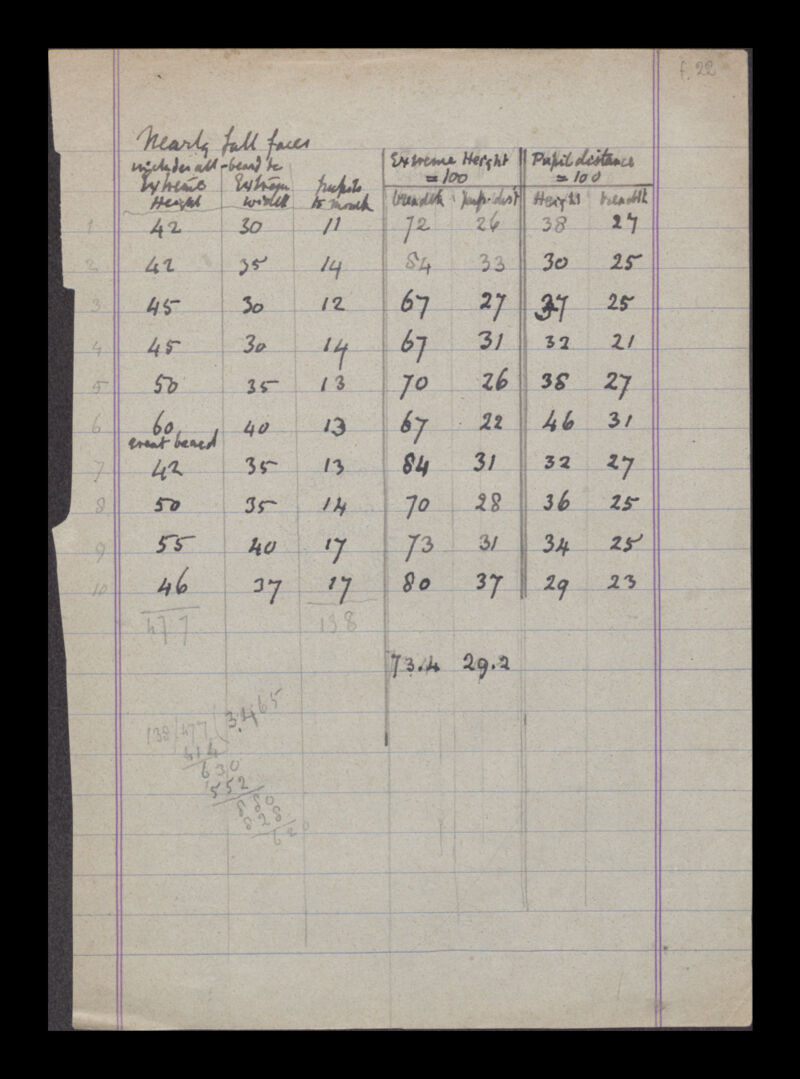 f. 22
Nearly full faces
includes all - beard &c
Extreme Height
Extreme width
pupils to mouth
Extreme Height = 100
Pupil distance = 100
breadth pup. dist Height breadth
1 42 30 11 72 26 38 27
2 42 35 14 84 33 30 25
3 45 30 12 67 27 37 25
4 45 30 14 67 31 32 21
5 50 35 13 70 26 38 27
6 60 40 13 67 22 46 31
great beard
7 42 35 13 84 31 32 27
8 50 35 14 70 28 36 25
9 55 40 17 73 31 34 25
10 46 37 17 80 37 29 23
477 138
73.4 29.2
138/477(3.465
414
630
552